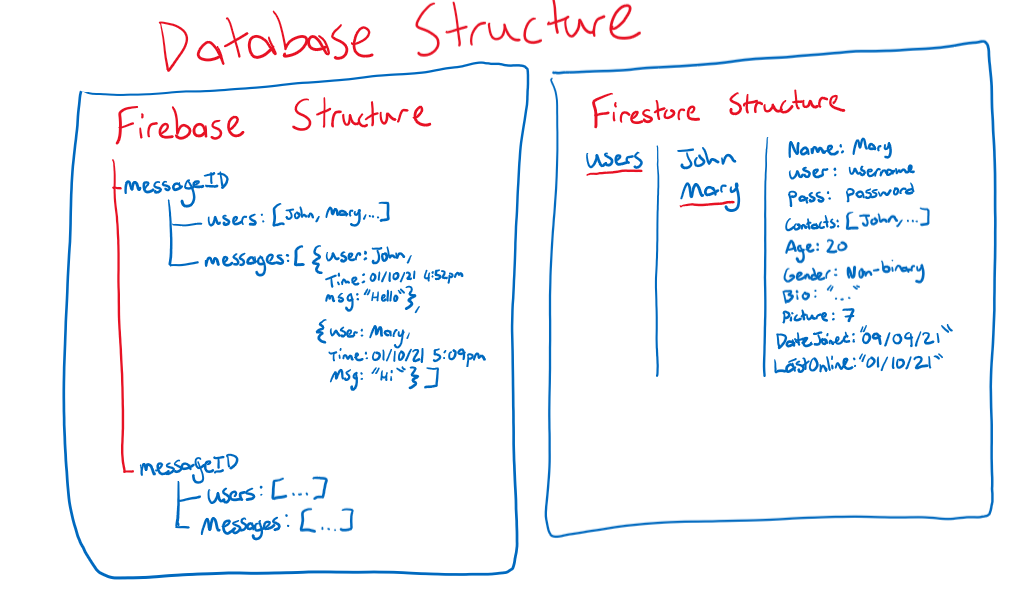 Database Structure
Firebase Structure
messageID
users: [John, Mary,...]
messages: [ {user: John,
Time: 01/10/21 4:52pm
msg: "Hello"},
{user: Mary,
Time: 01/10/21 5:09pm
Msg: "Hi"} ]
messageID
users: [...]
Messages: [...]
Firestore Structure
users
John
Mary
Name: Mary
user: username
Pass: Password
Contacts: [John,...]
Age: 20
Gender: Non-binary
Bio: "..."
Picture: 7
DateJoined: "09/09/21"
LastOnline: "01/10/21"